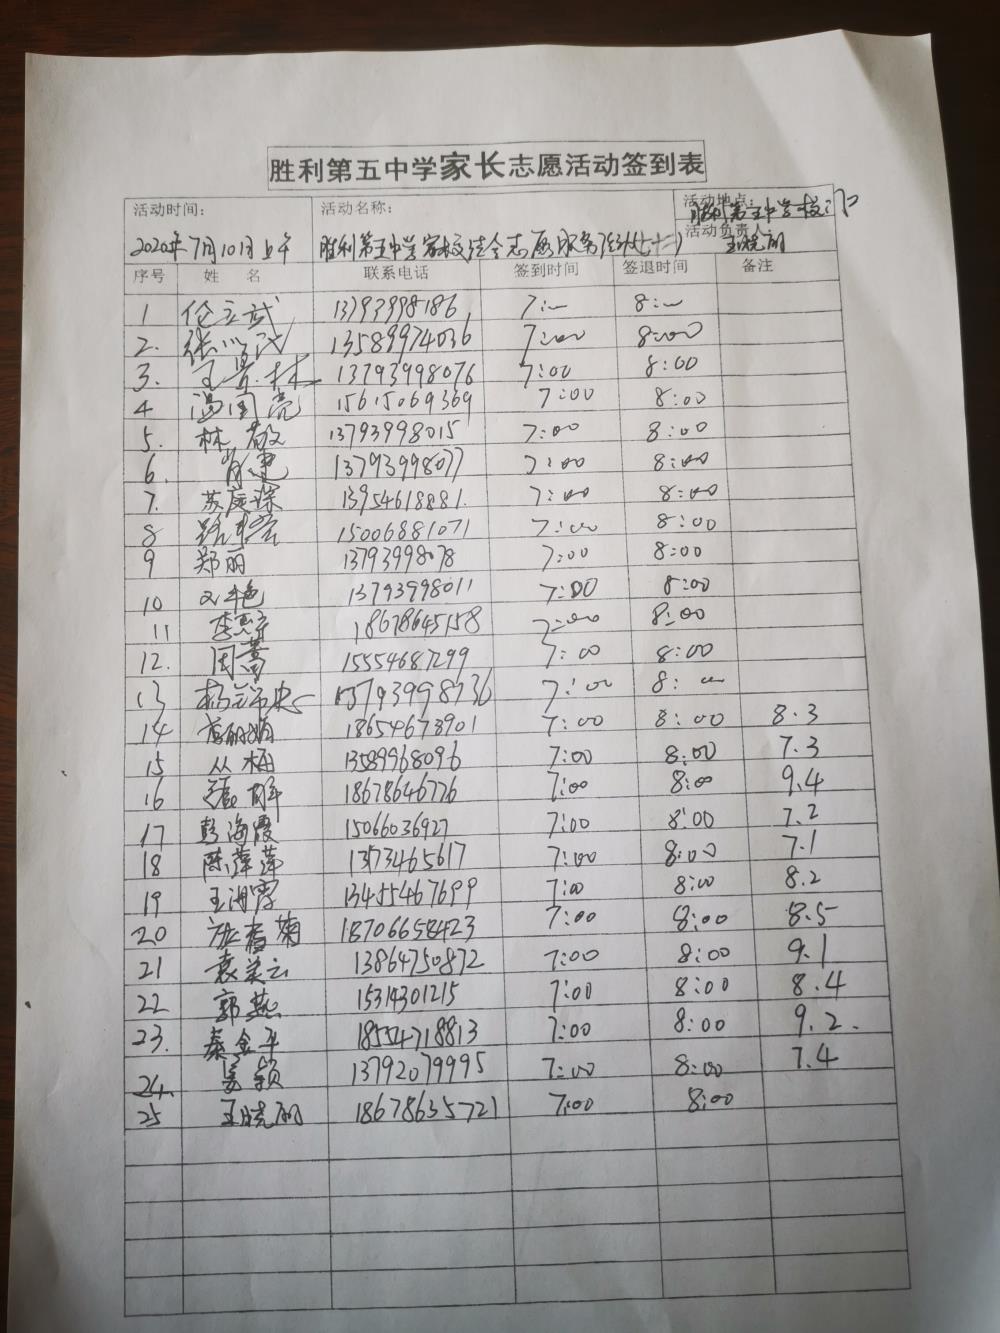 胜利第五中学家长志愿活动签到表
活动时间： 活动名称： 活动地点：胜利第五中学校门口
2020年7月10日上午 胜利第五中学家校结合志愿服务 活动负责人：王晓丽
序号 姓名 联系电话 签到时间 签退时间 备注
1 伦立武 13793998186 7:00 8:00
2. 13589974036 7:00 8:00
3. 王景林 13793998076 7:00 8:00
4 温国亮 15615069369 7:00 8:00
5. 林敬 13793998015 7:00 8:00
6. 肖建 13793998077 7:00 8:00
7. 苏庭深 13954618881. 7:00 8:00
8 15006881071 7:00 8:00
9 郑丽 13793998078 7:00 8:00
10 13793998011 7:00 8:00
11 18678645158 7:00 8:00
12. 周蕾 15554687299 7:00 8:00
13 13793998736 7:00 8:00
14 18654673901 7:00 8:00 8.3
15 丛梅 13589968096 7:00 8:00 7.3
16 18678646776 7:00 8:00 9.4
17 彭海霞 15066036927 7:00 8:00 7.2
18 陈萍萍 1373465617 7:00 8:00 7.1
19 王湘霞 13455467699 7:00 8:00 8.2
20 18706658423 7:00 8:00 8.5
21 袁美云 13864750872 7:00 8:00 9.1
22 郭燕 15314301215 7:00 8:00 8.4
23. 秦金平 18554718813 7:00 8:00 9.2.
24. 姜颖 13792079995 7:00 8:00 7.4
25 王晓丽 18678635721 7:00 8:00